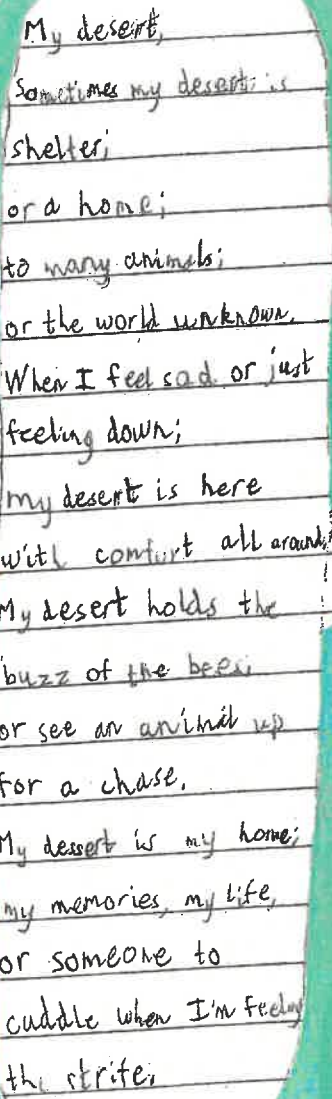 My desert,
Sometimes my desert is
shelter;
or a home;
to many animals;
or the world unknown.
When I feel sad or just
feeling down;
my desert is here
with comfort all around.
My desert holds the
buzz of the bees;
or see an animal up
for a chase.
My dessert is my home;
my memories, my life,
or someone to
cuddle when I'm feeling
the strife.